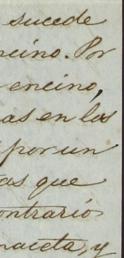 sucede
ncino. Por
encino,
as en los
por un
as que
ontrario
maceta, y